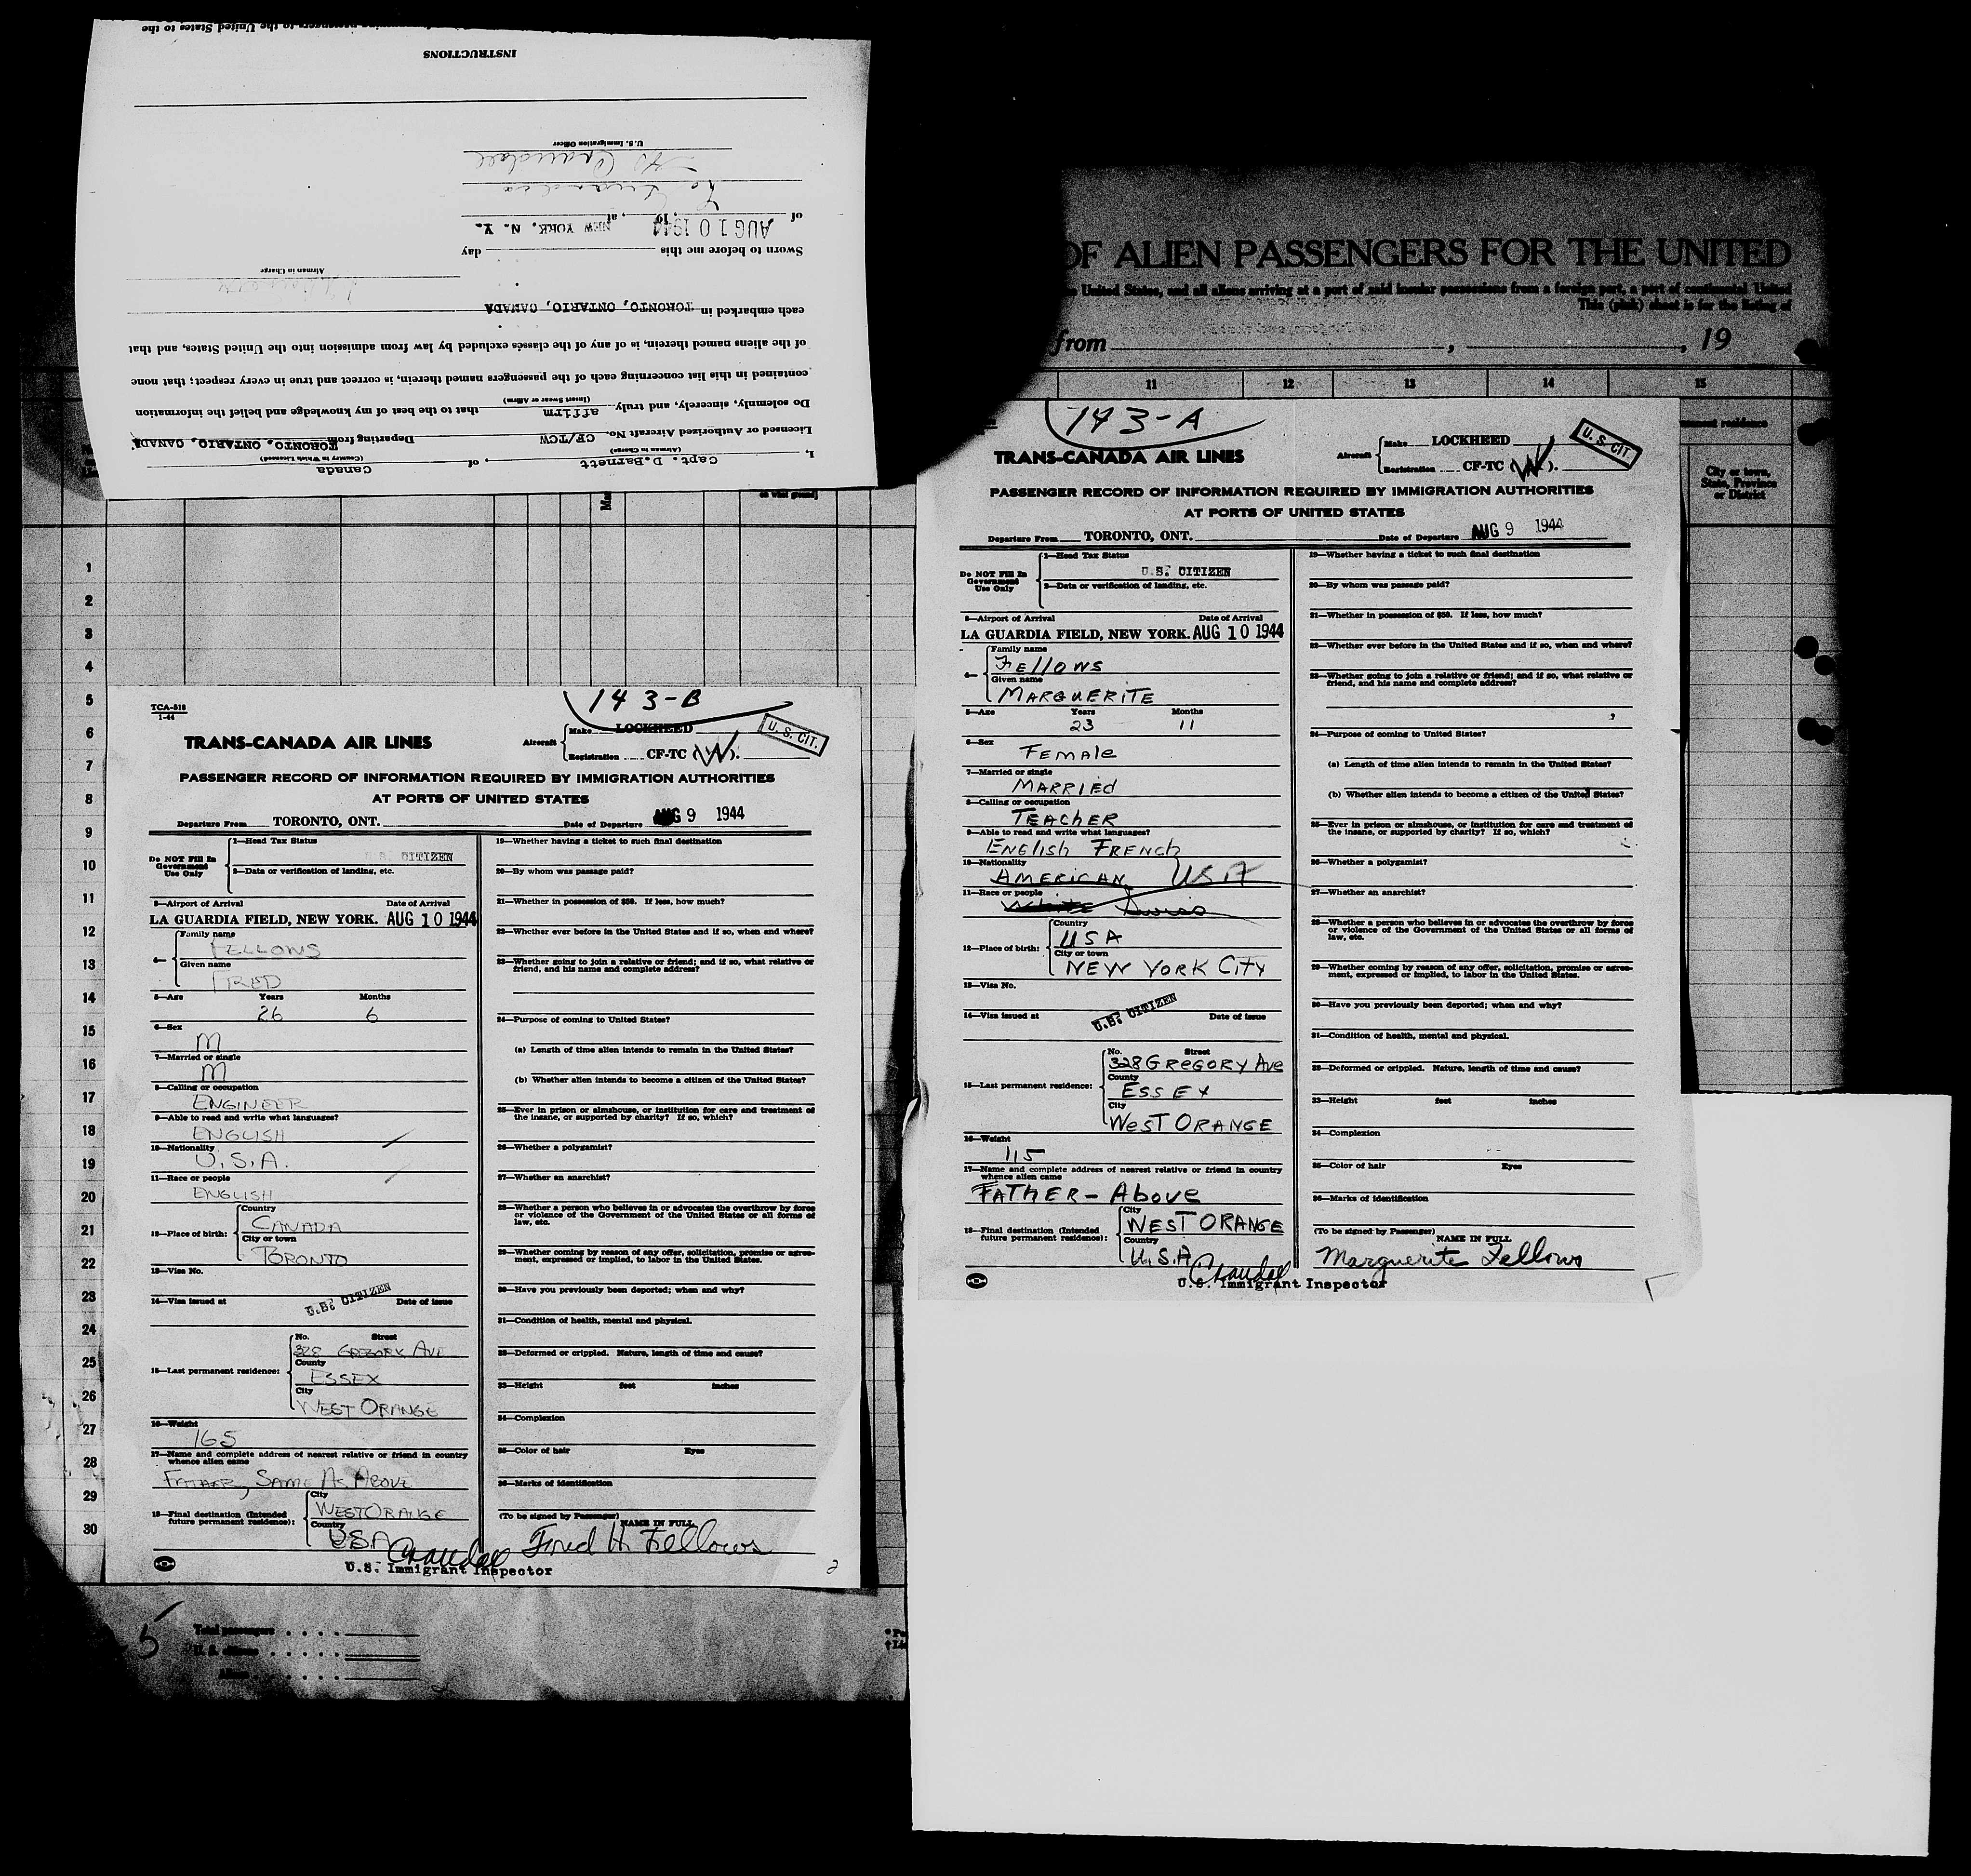 INSTRUCTIONS
U.S. Immigration Officer
of AUG 10 1944, 19, at NEW YORK, N. Y.
Sworn to before me this day
Airman in Charge
each embarked in TORONTO, ONTARIO, CANADA
of the aliens named therein, is of any of the classes excluded by law from admission into the United States, and that
contained in this list concerning each of the passengers named therein, is correct and true in every respect; that none
Do solemnly, sincerely, and truly affirm that to the best of my knowledge and belief the information
(Insert Swear or Affirm)
Licensed or Authorized Aircraft No. CF/TCW Departing from TORONTO, ONTARIO, CANADA
(Airman in Charge) (Country in Which Licensed)
I, Capt. D. Barnett, of Canada
OF ALIEN PASSENGERS FOR THE UNITED
United States, and all aliens arriving at a port of said insular possessions from a foreign port, a port of continental United
This (pink) sheet is for the listing of
from , , 19
11 12 13 14 15
City or town,
State, Province
or District
1
2
3
4
5
6
7
8
9
10
11
12
13
14
15
16
17
18
19
20
21
22
23
24
25
26
27
28
29
30
143-B
TCA-518
1-44
TRANS-CANADA AIR LINES
Aircraft Make LOCKHEED
Registration CF-TC (W).
U. S. CIT.
PASSENGER RECORD OF INFORMATION REQUIRED BY IMMIGRATION AUTHORITIES
AT PORTS OF UNITED STATES
Departure From TORONTO, ONT. Date of Departure AUG 9 1944
Do NOT Fill In Government Use Only
1—Head Tax Status
U.S. CITIZEN
2—Data or verification of landing, etc.
3—Airport of Arrival Date of Arrival
LA GUARDIA FIELD, NEW YORK. AUG 10 1944
4— Family name
FELLOWS
Given name
FRED
5—Age Years Months
26 6
6—Sex
M
7—Married or single
M
8—Calling or occupation
ENGINEER
9—Able to read and write what languages?
ENGLISH
10—Nationality
U.S.A.
11—Race or people
ENGLISH
12—Place of birth: Country
CANADA
City or town
TORONTO
13—Visa No.
14—Visa issued at U.S. CITIZEN Date of issue
15—Last permanent residence: No. Street
328 GREGORY AVE
County
ESSEX
City
WEST ORANGE
16—Weight
165
17—Name and complete address of nearest relative or friend in country
whence alien came
FATHER, SAME AS ABOVE
18—Final destination (Intended future permanent residence): City
WEST ORANGE
Country
U.S.A.
Crandall
U.S. Immigrant Inspector
19—Whether having a ticket to such final destination
20—By whom was passage paid?
21—Whether in possession of $50. If less, how much?
22—Whether ever before in the United States and if so, when and where?
23—Whether going to join a relative or friend; and if so, what relative or
friend, and his name and complete address?
24—Purpose of coming to United States?
(a) Length of time alien intends to remain in the United States?
(b) Whether alien intends to become a citizen of the United States?
25—Ever in prison or almshouse, or institution for care and treatment of
the insane, or supported by charity? If so, which?
26—Whether a polygamist?
27—Whether an anarchist?
28—Whether a person who believes in or advocates the overthrow by force
or violence of the Government of the United States or all forms of
law, etc.
29—Whether coming by reason of any offer, solicitation, promise or agree-
ment, expressed or implied, to labor in the United States.
30—Have you previously been deported; when and why?
31—Condition of health, mental and physical.
32—Deformed or crippled. Nature, length of time and cause?
33—Height feet inches
34—Complexion
35—Color of hair Eyes
36—Marks of identification
(To be signed by Passenger)
NAME IN FULL
Fred H. Fellows
2
5
Total passengers
U. S. citizens
Aliens
143-A
TRANS-CANADA AIR LINES
Aircraft Make LOCKHEED
Registration CF-TC (W).
U. S. CIT.
PASSENGER RECORD OF INFORMATION REQUIRED BY IMMIGRATION AUTHORITIES
AT PORTS OF UNITED STATES
Departure From TORONTO, ONT. Date of Departure AUG 9 1944
Do NOT Fill In Government Use Only
1—Head Tax Status
U.S. CITIZEN
2—Data or verification of landing, etc.
3—Airport of Arrival Date of Arrival
LA GUARDIA FIELD, NEW YORK. AUG 10 1944
4— Family name
FELLOWS
Given name
MARGUERITE
5—Age Years Months
23 11
6—Sex
FEMALE
7—Married or single
MARRIED
8—Calling or occupation
TEACHER
9—Able to read and write what languages?
ENGLISH FRENCH
10—Nationality
AMERICAN USA
11—Race or people
White Swiss
12—Place of birth: Country
USA
City or town
NEW YORK CITY
13—Visa No.
14—Visa issued at U.S. CITIZEN Date of issue
15—Last permanent residence: No. Street
328 GREGORY AVE
County
ESSEX
City
WEST ORANGE
16—Weight
115
17—Name and complete address of nearest relative or friend in country
whence alien came
FATHER - ABOVE
18—Final destination (Intended future permanent residence): City
WEST ORANGE
Country
U.S.A
Crandall
U.S. Immigrant Inspector
19—Whether having a ticket to such final destination
20—By whom was passage paid?
21—Whether in possession of $50. If less, how much?
22—Whether ever before in the United States and if so, when and where?
23—Whether going to join a relative or friend; and if so, what relative or
friend, and his name and complete address?
24—Purpose of coming to United States?
(a) Length of time alien intends to remain in the United States?
(b) Whether alien intends to become a citizen of the United States?
25—Ever in prison or almshouse, or institution for care and treatment of
the insane, or supported by charity? If so, which?
26—Whether a polygamist?
27—Whether an anarchist?
28—Whether a person who believes in or advocates the overthrow by force
or violence of the Government of the United States or all forms of
law, etc.
29—Whether coming by reason of any offer, solicitation, promise or agree-
ment, expressed or implied, to labor in the United States.
30—Have you previously been deported; when and why?
31—Condition of health, mental and physical.
32—Deformed or crippled. Nature, length of time and cause?
33—Height feet inches
34—Complexion
35—Color of hair Eyes
36—Marks of identification
(To be signed by Passenger)
NAME IN FULL
Marguerite Fellows